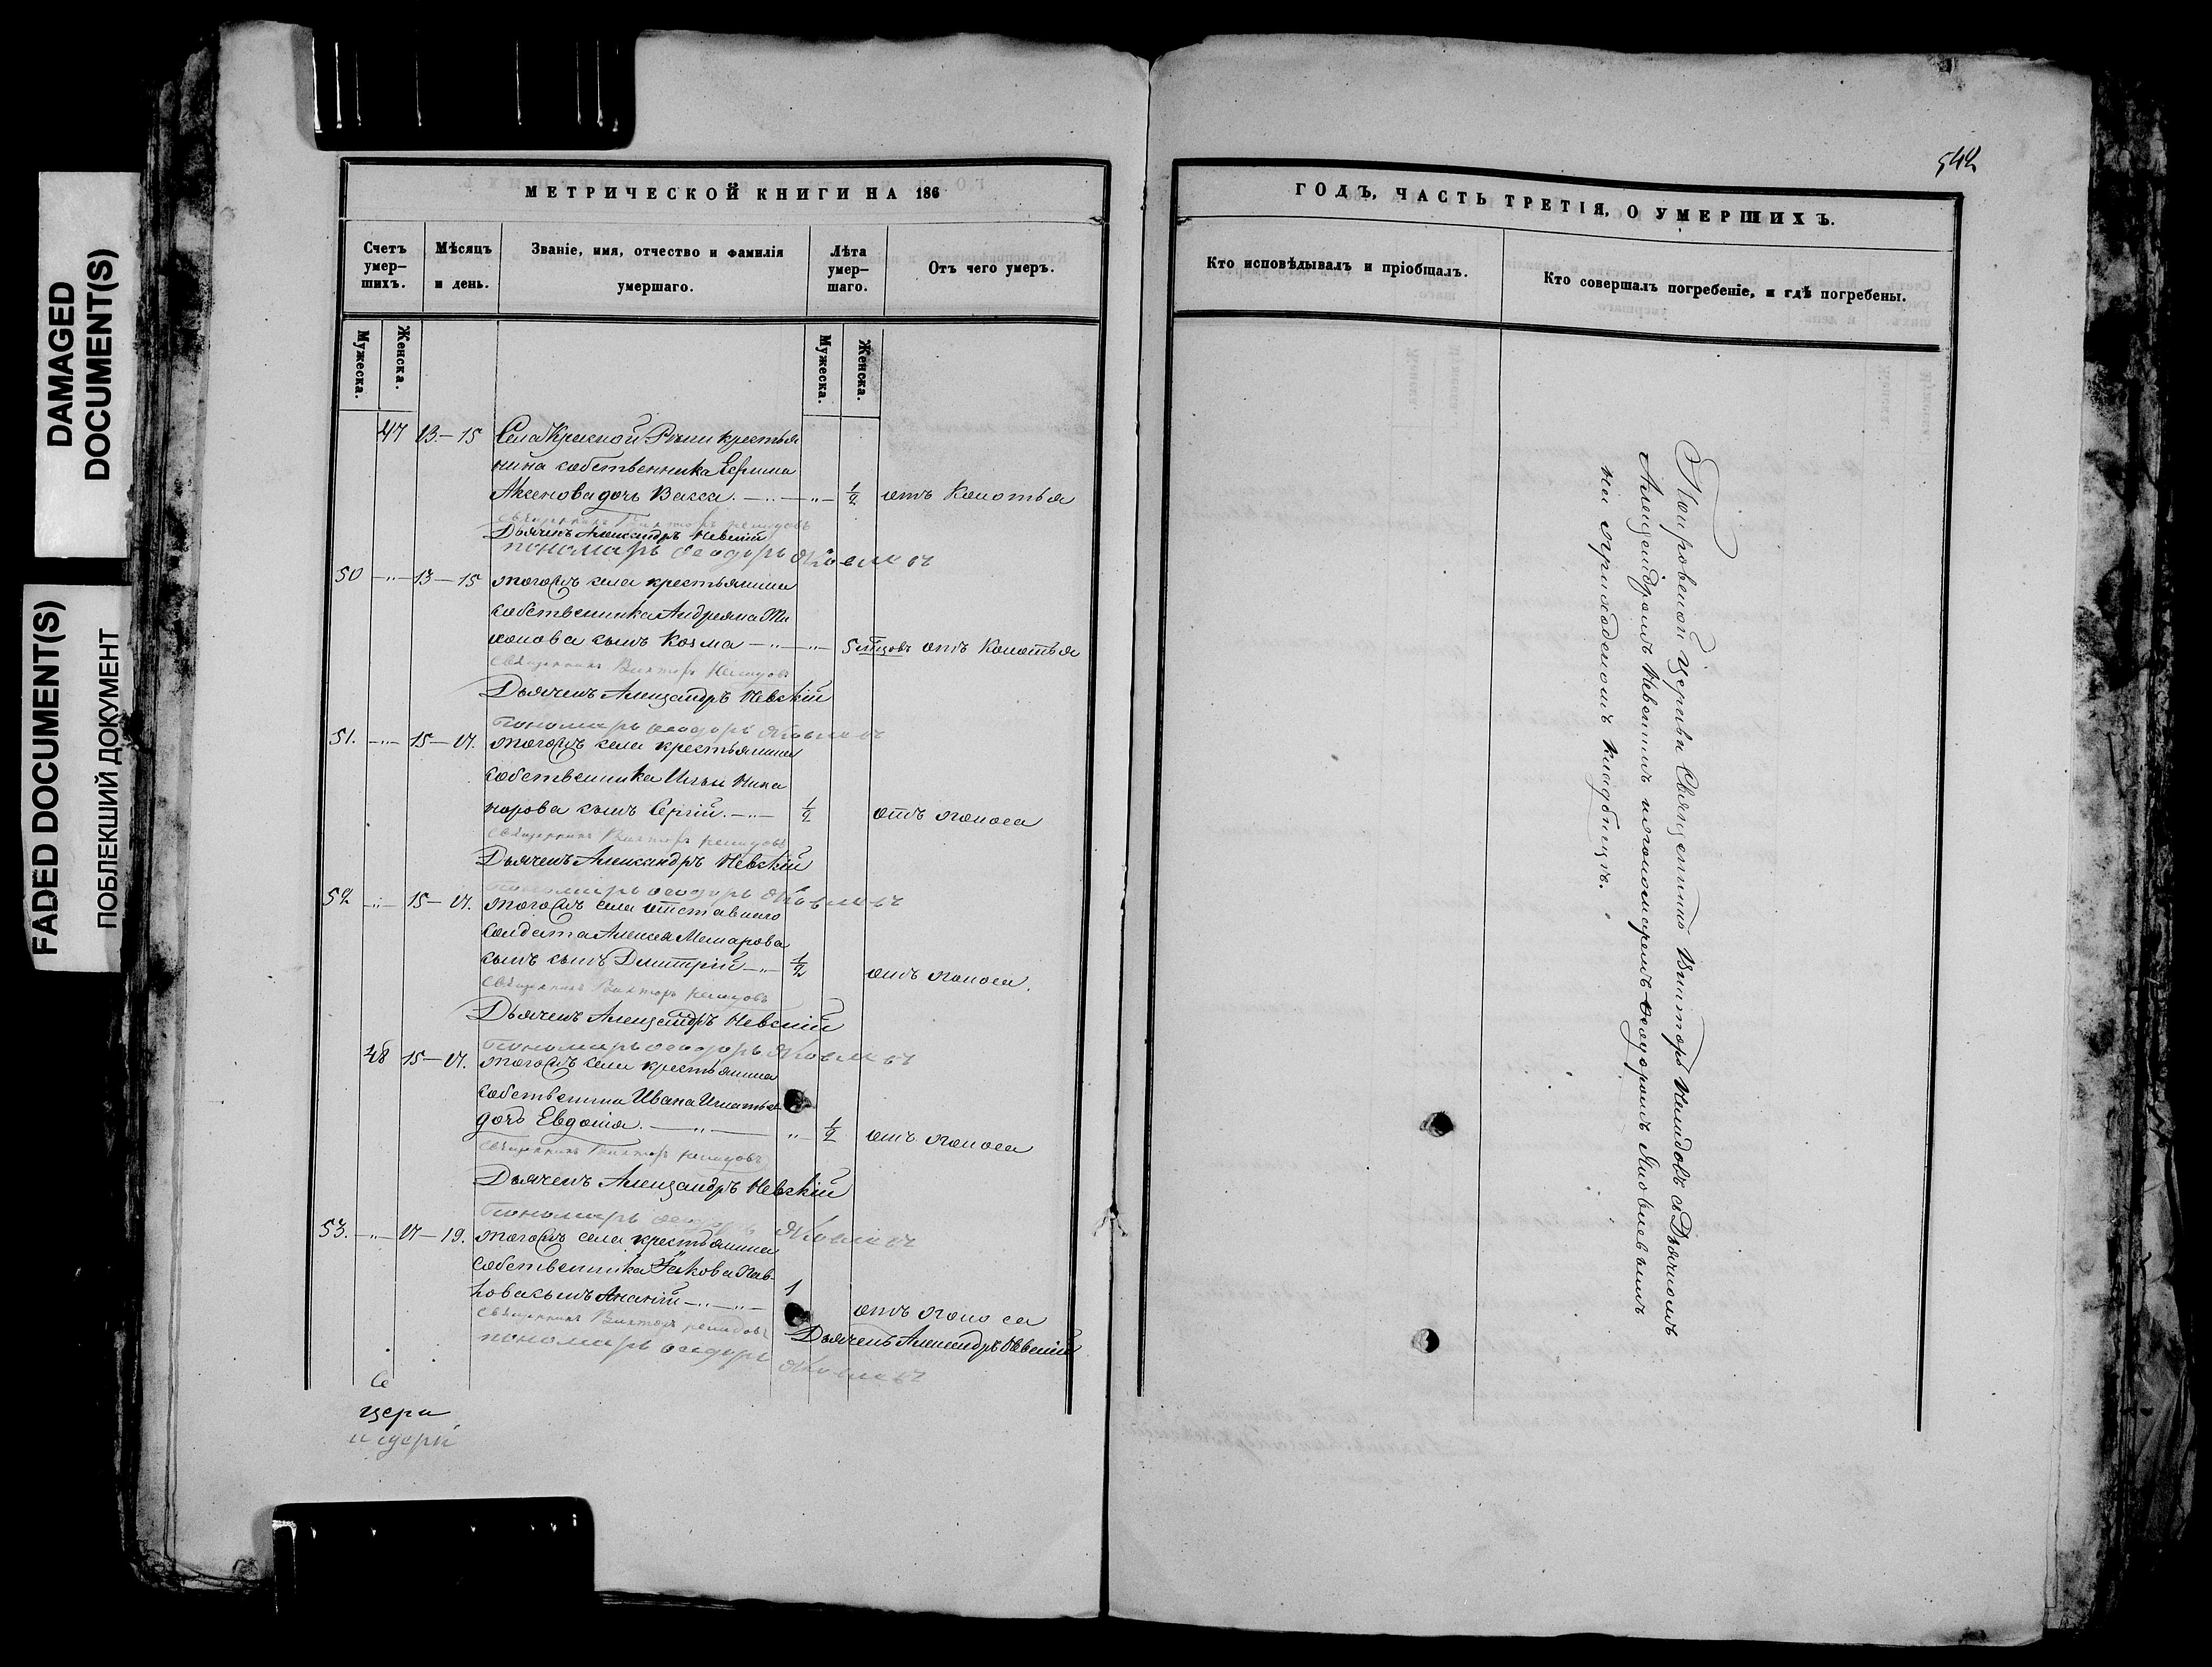 DAMAGED
DOCUMENT(S)
FADED DOCUMENT(S)
ПОБЛЕКШИЙ ДОКУМЕНТ
МЕТРИЧЕСКОЙ КНИГИ НА 186
Счетъ умер-шихъ.
Мѣсяцъ и день.
Званіе, имя, отчество и фамилія умершаго.
Лѣта умер-шаго.
Отъ чего умеръ.
Мужеска.
Женска.
Мужеска.
Женска.
47 13 — 15 Села Красной Рѣчки крестья
нина собственника Ефима
Аксенова дочь Васса. — " — " — ½ отъ Колотья
священникъ Викторъ
Дьячекъ Александръ Невскій
пономарь Ѳеодоръ Яковлевъ
50 — " — 13 — 15 тогожъ села крестьянина
собственника Андреяна Ти
хонова сынъ Козма — " — " — 5 мцовъ отъ Колотья
священникъ Викторъ
Дьячекъ Александръ Невскій
пономарь Ѳеодоръ Яковлевъ
51. — " — 15 — 17. тогожъ села крестьянина
собственника Ильи Ника
норова сынъ Сергій. — " — ½ отъ поноса
священникъ Викторъ
Дьячекъ Александръ Невскій
пономарь Ѳеодоръ Яковлевъ
52 — " — 15 — 17. тогожъ села отставнаго
солдата Алексея
сынъ сынъ Дмитрій — " — ½ отъ поноса.
священникъ Викторъ
Дьячекъ Александръ Невскій
пономарь Ѳеодоръ Яковлевъ
48 15 — 17. тогожъ села крестьянина
собственника Ивана Игнатьева
дочь Евдокія. — " — " ½ отъ поноса
священникъ Викторъ
Дьячекъ Александръ Невскій
пономарь Ѳеодоръ Яковлевъ
53. — " — 17 — 19. тогожъ села крестьянина
собственника Якова Пав-
лова сынъ Ананій — " — " — 1 отъ поноса
священникъ Викторъ
Дьячекъ Александръ Невскій
пономарь Ѳеодоръ Яковлевъ
Се
церк
и церк
542
ГОДЪ, ЧАСТЬ ТРЕТІЯ, О УМЕРШИХЪ.
Кто исповѣдывалъ и пріобщалъ.
Кто совершалъ погребеніе, и гдѣ погребены.
Покровской церкви Священникъ Викторъ съ Дьячкомъ
Александромъ Невскимъ и пономаремъ Ѳеодоромъ Яковлевымъ
на приходскомъ кладбищѣ.